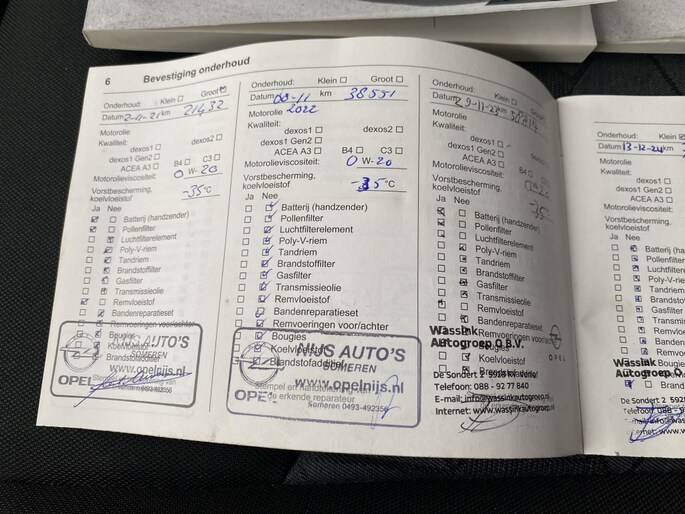 6 Bevestiging onderhoud
Onderhoud: Klein Groot
Datum 2-11-21 km 21432
Motorolie
Kwaliteit:
dexos1 dexos2
dexos1 Gen2
ACEA A3 B4 C3
Motorolieviscositeit: 0 W-20
Vorstbescherming, koelvloeistof -35 °C
Ja Nee
Batterij (handzender)
Pollenfilter
Luchtfilterelement
Poly-V-riem
Tandriem
Brandstoffilter
Gasfilter
Transmissieolie
Remvloeistof
Bandenreparatieset
Remvoeringen voor/achter
Bougies
Koelvloeistof
NIJS AUTO'S
SOMEREN
www.opelnijs.nl
OPEL
Someren 0493-492356
Onderhoud: Klein Groot
Datum 08-11 km 38551
Motorolie 2022
Kwaliteit:
dexos1 dexos2
dexos1 Gen2
ACEA A3 B4 C3
Motorolieviscositeit: 0 W-20
Vorstbescherming, koelvloeistof -35 °C
Ja Nee
Batterij (handzender)
Pollenfilter
Luchtfilterelement
Poly-V-riem
Tandriem
Brandstoffilter
Gasfilter
Transmissieolie
Remvloeistof
Bandenreparatieset
Remvoeringen voor/achter
Bougies
Koelvloeistof
NIJS AUTO'S
SOMEREN
www.opelnijs.nl
OPEL
de erkende reparateur
Someren 0493-492356
Onderhoud: Klein Groot
Datum 29-11-23 km
Motorolie
Kwaliteit:
dexos1 dexos2
dexos1 Gen2
ACEA A3 B4 C3
Motorolieviscositeit:
Vorstbescherming, koelvloeistof -35
Ja Nee
Batterij (handzender)
Pollenfilter
Luchtfilterelement
Poly-V-riem
Tandriem
Brandstoffilter
Gasfilter
Transmissieolie
Remvloeistof
Bandenreparatieset
Remvoeringen voor/achter
Bougies
Koelvloeistof
Wassink
Autogroep O B.V.
OPEL
De Sondert 2
Telefoon: 088 - 92 77 840
E-mail: info@wassinkautogroep.nl
Internet: www.wassinkautogroep.nl
Onderhoud: Klein
Datum 13-12-24 km
Motorolie
Kwaliteit:
dexos1
dexos1 Gen2
ACEA A3
Motorolieviscositeit:
Vorstbescherming, koelvloeistof
Ja Nee
Batterij
Pollenfilter
Luchtfilter
Poly-V-
Tandriem
Brandstof
Gasfilter
Transmis
Remvloei
Banden
Remvoer
Bougies
Wassink
Autogroep O
De Sondert 2